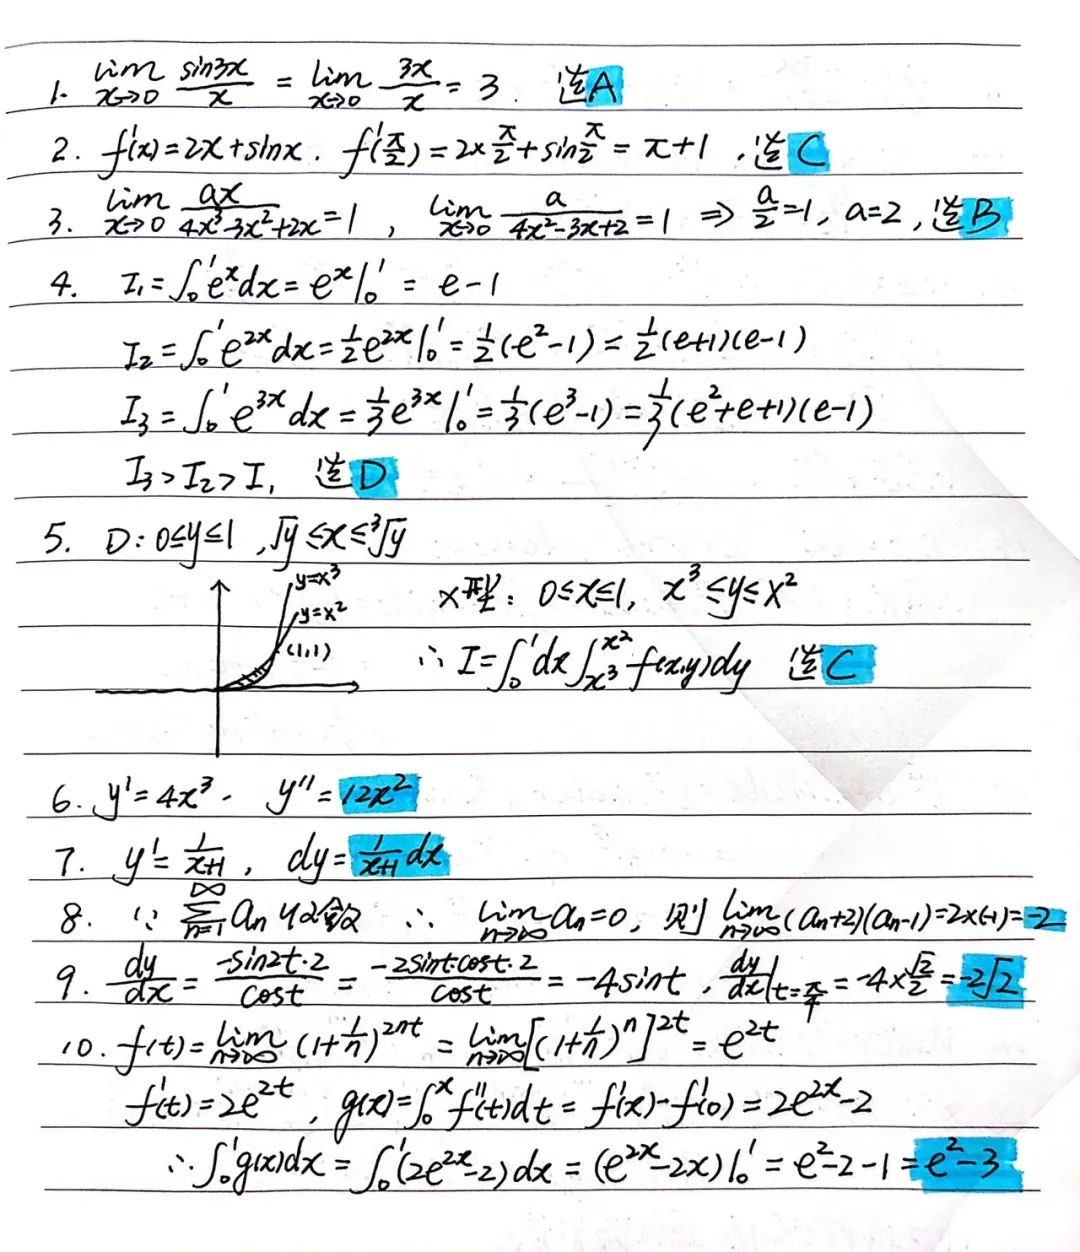 1. lim x→0 sin3x/x = lim x→0 3x/x = 3. 选A
2. f'(x)=2x+sinx. f'(π/2)=2×π/2+sinπ/2=π+1. 选C
3. lim x→0 ax/(4x³-3x²+2x)=1, lim x→0 a/(4x²-3x+2)=1 ⇒ a/2=1, a=2, 选B
4. I₁=∫₀¹eˣdx=eˣ|₀¹=e-1
I₂=∫₀¹e²ˣdx=1/2e²ˣ|₀¹=1/2(e²-1)=1/2(e+1)(e-1)
I₃=∫₀¹e³ˣdx=1/3e³ˣ|₀¹=1/3(e³-1)=1/3(e²+e+1)(e-1)
I₃>I₂>I₁ 选D
5. D: 0≤y≤1, √y≤x≤³√y
y=x³
y=x²
(1,1)
x型: 0≤x≤1, x³≤y≤x²
∴ I=∫₀¹dx∫_{x³}^{x²}f(x,y)dy 选C
6. y'=4x³. y''=12x²
7. y'=1/(x+1), dy=1/(x+1)dx
8. ∵ ∑_{n=1}^{∞}aₙ收敛 ∴ lim n→∞ aₙ=0, 则 lim n→∞ (aₙ+2)(aₙ-1)=2×(-1)=-2
9. dy/dx=-sin2t·2/cost=-2sintcost·2/cost=-4sint, dy/dx|t=π/4=-4×√2/2=-2√2
10. f(t)=lim n→∞ (1+1/n)^{2nt}=lim n→∞ [(1+1/n)ⁿ]^{2t}=e^{2t}
f'(t)=2e^{2t}, g(x)=∫₀ˣf''(t)dt=f'(x)-f'(0)=2e^{2x}-2
∴ ∫₀¹g(x)dx=∫₀¹(2e^{2x}-2)dx=(e^{2x}-2x)|₀¹=e²-2-1=e²-3